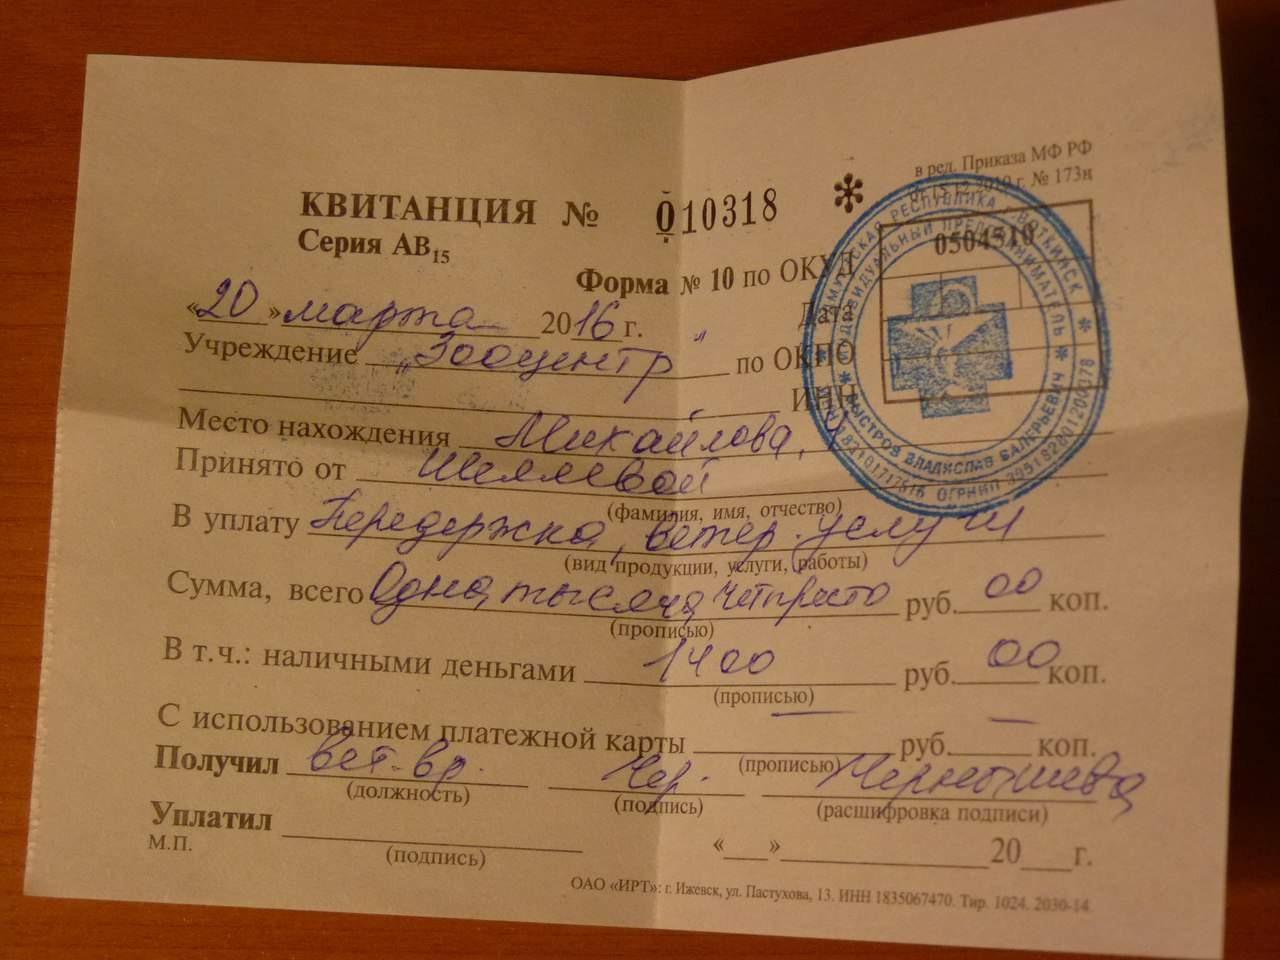 в ред. Приказа МФ РФ
№ 173н
КВИТАНЦИЯ № 010318 *
Серия АВ15
Форма № 10 по ОКУД 0504510
«20» марта 2016 г. Дата
Учреждение "Зооцентр" по ОКПО
ИНН
Место нахождения Михайлова, 4
Принято от Шеллевой
(фамилия, имя, отчество)
В уплату Передержка, ветер. услуги
(вид продукции, услуги, работы)
Сумма, всего Одна тысяча четыреста руб. 00 коп.
(прописью)
В т.ч.: наличными деньгами 1400 руб. 00 коп.
(прописью)
С использованием платежной карты — руб. — коп.
(прописью)
Получил вет. вр. Чер. Чернышева
(должность) (подпись) (расшифровка подписи)
Уплатил
(подпись)
М.П. «___»________20___г.
ОАО «ИРТ»: г. Ижевск, ул. Пастухова, 13. ИНН 1835067470. Тир. 1024. 2030-14
УДМУРТСКАЯ РЕСПУБЛИКА г. ВОТКИНСК
ИНДИВИДУАЛЬНЫЙ ПРЕДПРИНИМАТЕЛЬ
БЫСТРОВ ВЛАДИСЛАВ ВАЛЕРЬЕВИЧ
ОГРНИП